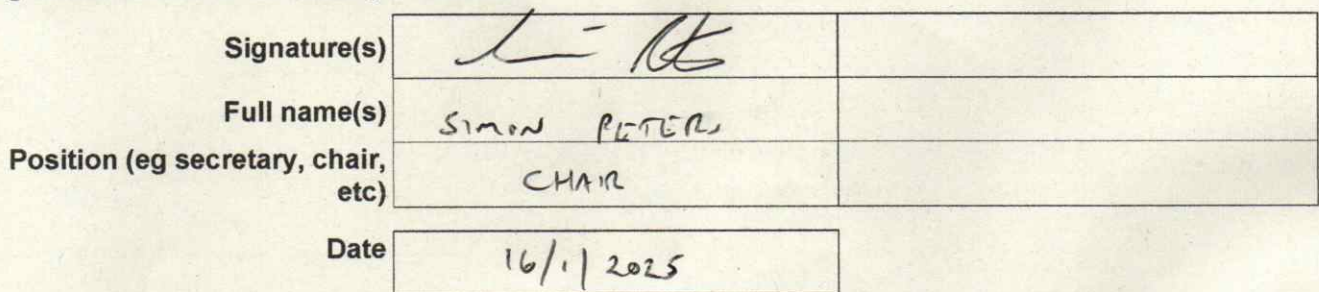 Signature(s)
Full name(s) SIMON PETERS
Position (eg secretary, chair,
etc) CHAIR
Date 16/1/2025